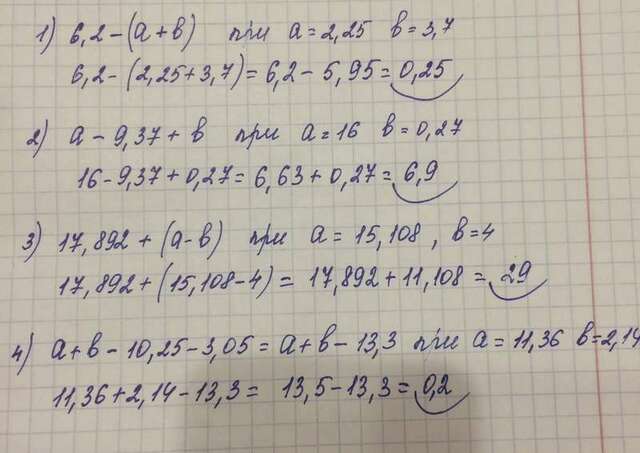 1) 6,2-(a+b) при a=2,25 b=3,7
6,2-(2,25+3,7)=6,2-5,95=0,25
2) a-9,37+b при a=16 b=0,27
16-9,37+0,27=6,63+0,27=6,9
3) 17,892+(a-b) при a=15,108, b=4
17,892+(15,108-4)=17,892+11,108=29
4) a+b-10,25-3,05=a+b-13,3 при a=11,36 b=2,14
11,36+2,14-13,3=13,5-13,3=0,2